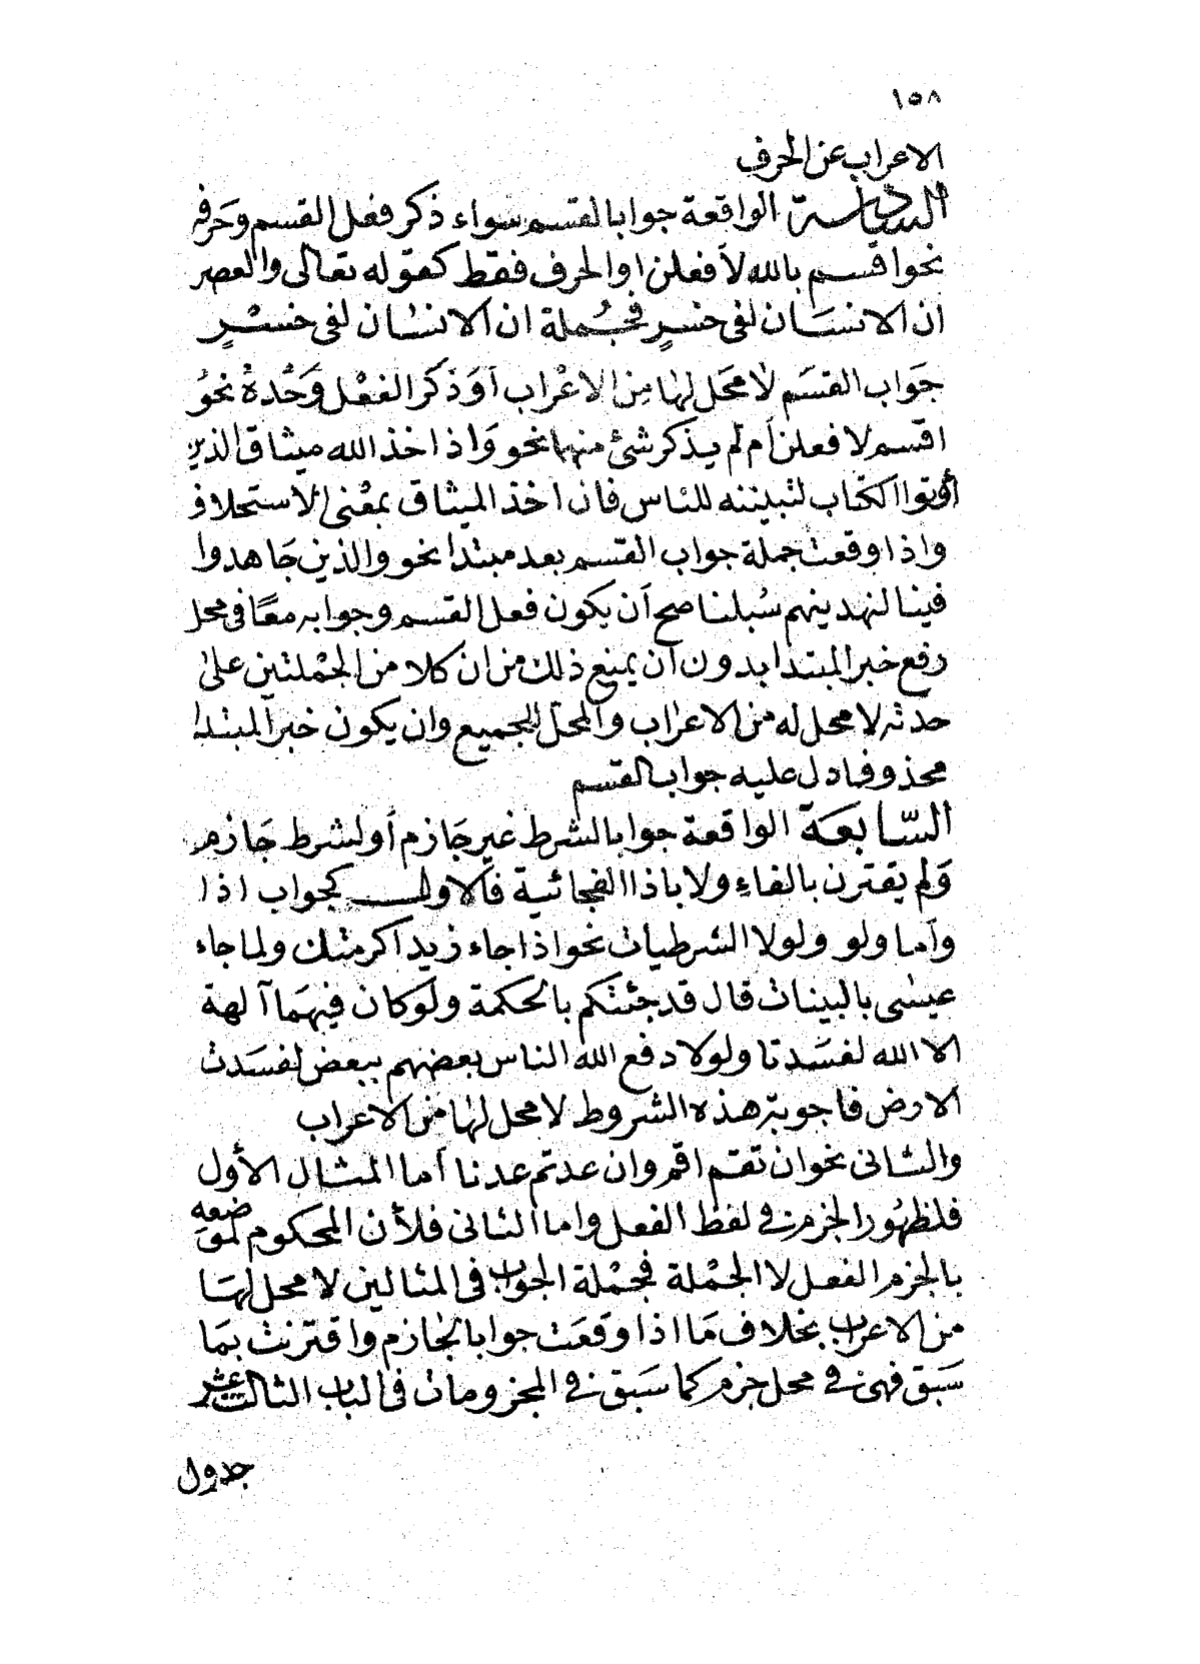 ١٥٨
الاعراب عن الحرف
السادسة الواقعة جوابا لقسم سواء ذكر فعل القسم وحرفه
نحو اقسم بالله لأفعلن او الحرف فقط كقوله تعالى والعصر
ان الانسَان لفى خسرٍ فجُملة ان الانسان لفى خسْرٍ
جَواب القسَم لا محَل لها مِن الاعْراب أوَ ذكَر الفعْل وَحْدهُ نحوُ
اقسم لا فعلن أم لم يذكر شئ منهما نحو وَاذ اخذ الله ميثاق الذين
أوتوا الكتاب لتبيننه للناس فان اخذ الميثاق بمعْنى الاستحلاف
واذا وقعت جملة جواب القسم بعد مبتدا نحو والذين جَاهدوا
فينا لنهدينهم سُبلنا صح أن يكون فعل القسم وجوابه معًا فى محل
رفع خبر المبتدا بدون أن يمنع ذلك من ان كلا من الجْملتين علىٰ
حدته لا محل له من الاعراب والمحل للجميع وان يكون خبر المبتدا
محذوفا دل عليه جواب القسم
السّابعَة الواقعة جوابا لشرط غير جَازم أو لشرط جَازم
وَلم يقترن بالفاءِ ولا باذا الفجائية فالاول كجواب اذا
وأما ولو ولولا الشرطيات نحو اذا جاء زيد اكرمتك ولما جاء
عيسٰى بالبينات قال قد جئتكم بالحكمة ولو كان فيهمَا آلهة
الا الله لفسَدتا ولولا دفع الله الناس بعضهم ببعض لفسَدت
الارض فاجوبة هذه الشروط لا محل لها من الاعراب
والثانى نحو ان تقم اقم وان عدتم عدنا أما المثال الأول
فلظهُور الجزم فى لفظ الفعل واما الثانى فلأن المحكوم لموضعه
بالجزم الفعل لا الجْملة فجْملة الجواب فى المثالين لا محل لهَا
من الاعراب بخلاف مَا اذا وقعَت جوابا لجازم واقترنت بمَا
سَبق فهى فى محل جزم كما سَبق فى المجزومات فى الباب الثالث عشر
جدول